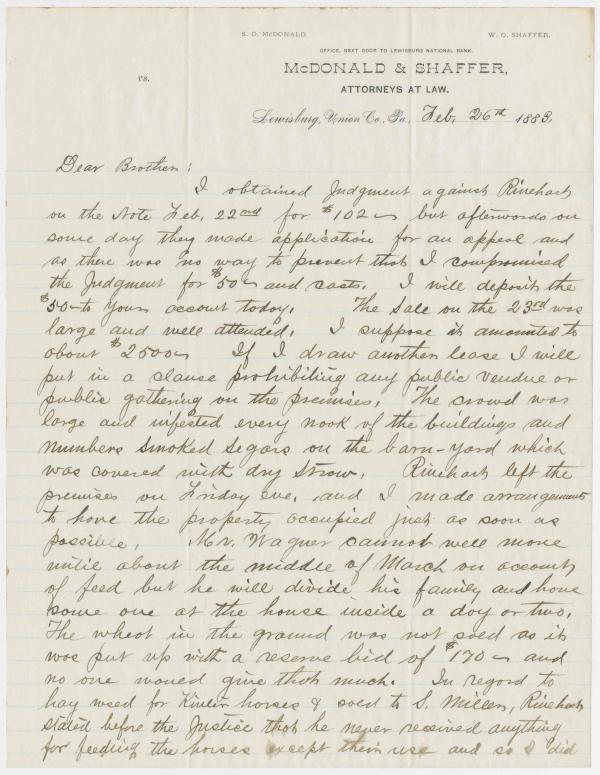 S. D. McDONALD. W. O. SHAFFER.
OFFICE, NEXT DOOR TO LEWISBURG NATIONAL BANK.
McDONALD & SHAFFER,
vs.
ATTORNEYS AT LAW.
Lewisburg, Union Co., Pa., Feb. 26th 1883,
Dear Brother:
I obtained Judgment against Rinehart
on the Note Feb. 22nd for $102 but afterwords on
some day they made application for an appeal and
as there was no way to prevent that I compromised
the Judgment for $50 and costs. I will deposit the
$50 to your account today. The Sale on the 23rd was
large and well attended. I suppose it amounted to
about $2500 If I draw another lease I will
put in a clause prohibiting any public vendue or
public gathering on the premises. The crowd was
large and infested every nook of the buildings and
numbers smoked segars on the barn-yard which
was covered with dry straw. Rinehart left the
premises on Friday eve. and I made arrangements
to have the property occupied just as soon as
possible. Mr. Wagner cannot well move
until about the middle of March on account
of feed but he will divide his family and have
some one at the house inside a day or two.
The wheat in the ground was not sold as it
was put up with a reserve bid of $170 and
no one would give that much. In regard to
hay used for horses & sold to S. Miller, Rinehart
stated before the Justice that he never received anything
for feeding the horses except their use and so I did